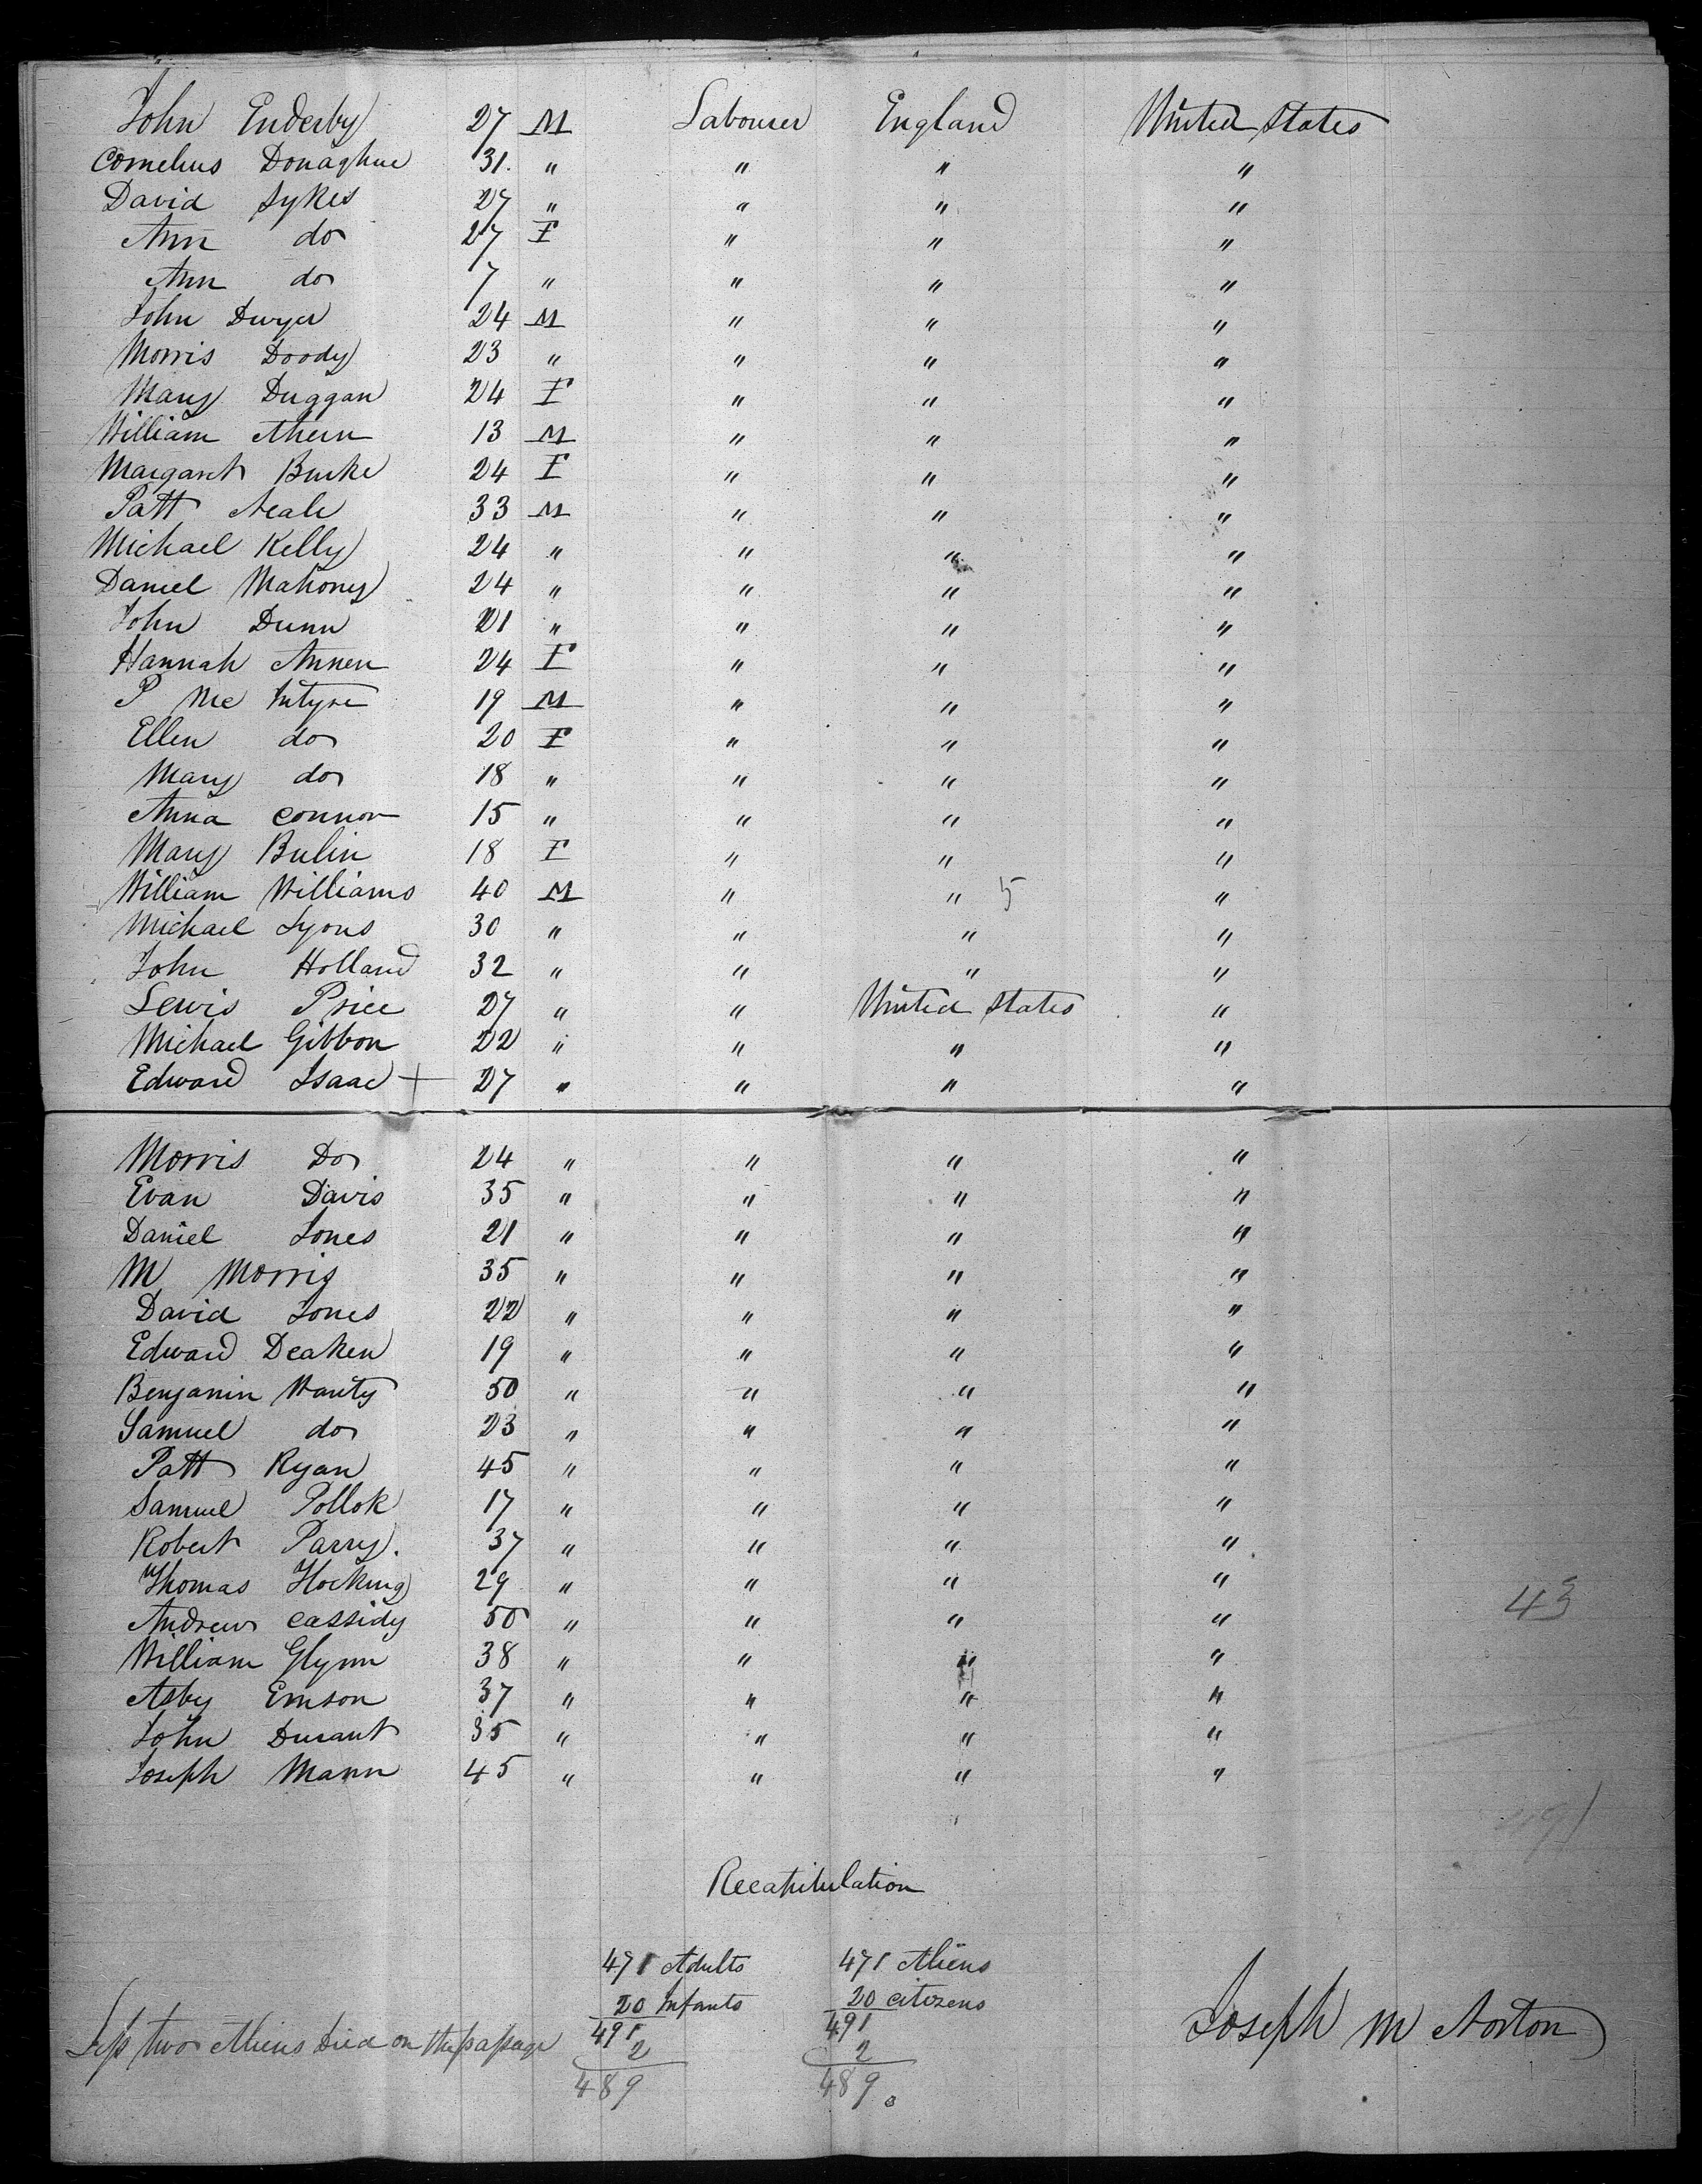 John Enderby 27 M Labourer England United States
Cornelius Donaghue 31. " " " "
David Sykes 27 " " " "
Ann do 27 F " " "
Ann do 7 " " " "
John Dwyer 24 M " " "
Morris Doody 23 " " " "
Mary Duggan 24 F " " "
William Ahern 13 M " " "
Margaret Burke 24 F " " "
Patt Neale 33 M " " "
Michael Kelly 24 " " " "
Daniel Mahoney 24 " " " "
John Dunn 21 " " " "
Hannah 24 F " " "
P Mc Intyre 19 M " " "
Ellen do 20 F " " "
Mary do 18 " " " "
Anna Connor 15 " " " "
Mary Bulin 18 F " " "
William Williams 40 M " " 5 "
Michael Lyons 30 " " " "
John Holland 32 " " " "
Lewis Price 27 " " United States "
Michael Gibbon 22 " " " "
Edward Isaac + 27 " " " "
Morris Do 24 " " " "
Evan Davis 35 " " " "
Daniel Jones 21 " " " "
M Morris 35 " " " "
David Jones 22 " " " "
Edward Deaken 19 " " " "
Benjamin Wanty 50 " " " "
Samuel do 23 " " " "
Patt Ryan 45 " " " "
Samuel Pollok 17 " " " "
Robert Parry. 37 " " " "
Thomas Hocking 29 " " " "
Andrew Cassidy 50 " " " " 43
William Glynn 38 " " " "
Asby Emson 37 " " " "
John Durant 35 " " " "
Joseph Mann 45 " " " "
491
Recapitulation
471 Adults 471 Aliens
20 Infants 20 citizens
491 491
Less two Aliens Died on the passage 2 2
489 489
Joseph M Norton